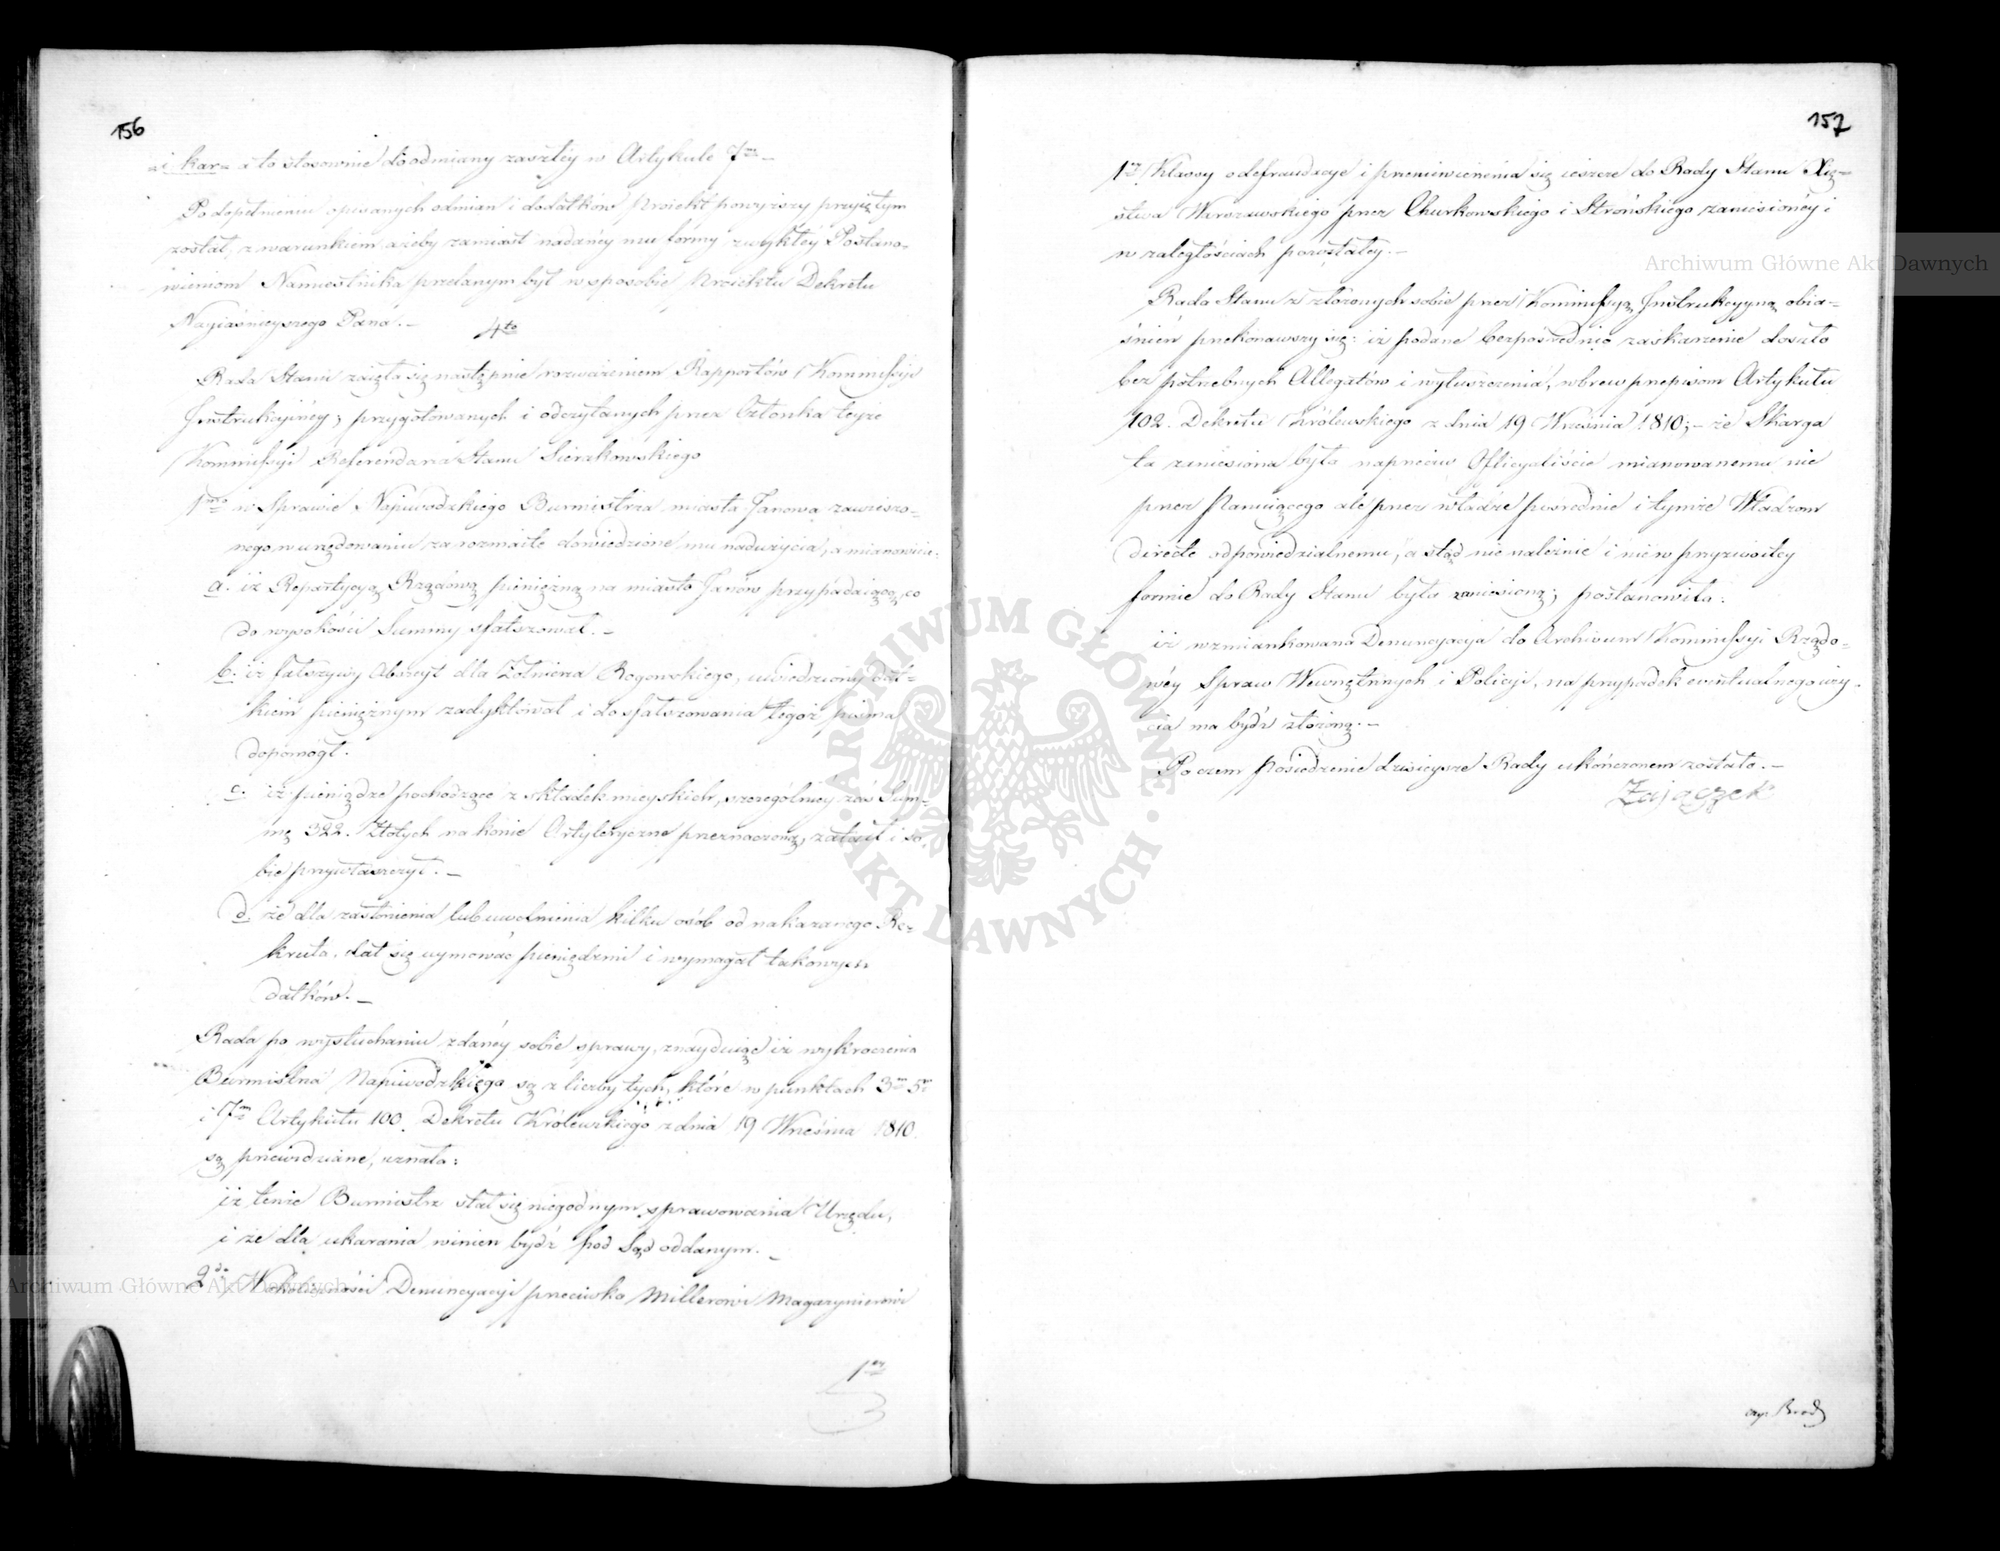 156
„i kar„ a to stosownie do odmiany zaszłey w Artykule 7m̲ –
Po dopełnieniu opisanych odmian i dodatków Proiekt powyższy przyiętym
został, z warunkiem ażeby zamiast nadańey mu formy zwykłey Postano-
wieniom Namiestnika przelanym był w sposobie Proiektu Dekretu
Nayiaśnieyszego Pana. –
4to
Rada Stanu zaięła się następnie rozważeniem Rapportów Kommissyi
Instrukcyiney; przygotowanych i odczytanych przez Członka teyże
Kommissyi Referendarza Stanu Sierakowskiego
1mo w Sprawie Napiwodzkiego Burmistrza miasta Janowa zawieszo-
nego w urzędowaniu za rozmaite dowiedzione mu nadużycia, a mianowicie:
a. iż Repartycyą Rządową pieniężną na miasto Janów przypadaiącą, co
do wysokości Summy sfałszował. –
b. iż fałszywy Abszeyt dla Żołnierza Rogowskiego, uwiedziony dat-
kiem pieniężnym zadyktował i do sfałszowania tegoż pisma
dopomógł.
c. iż pieniądze pochodzące z składek mieyskich, szczególniey zaś Sum-
mę 322. Złotych na konie Artyleryczne przeznaczoną, zataił i so-
bie przywłaszczył. –
d. że dla zasłonienia lub uwolnienia kilku osób od nakazanego Re-
kruta. dał się uymować pieniędzmi i wymagał takowych
datków. –
Rada po wysłuchaniu zdańey sobie sprawy, znayduiąc iż wykroczenia
Burmistrza Napiwodzkiego są z liczby tych, które w punktach 3m 5m
i 7m Artykułu 100. Dekretu Królewskiego z dnia 19 Września 1810.
są przewidziane, uznała:
iż tenże Burmistrz stał się niegodnym sprawowania Urzędu,
i że dla ukarania winien bydź pod Sąd oddanym. –
2do W okoliczności Denuncyacyi przeciwko Millerowi Magazynierowi
1ey
157
1ey Klassy o defraudacye i przeniewierzenia się ieszcze do Rady Stanu Xię-
stwa Warszawskiego przez Churkowskiego i Strońskiego zaniesionéy i
w zaległościach pozostałey. –
Rada Stanu z złożonych sobie przez Kommissyą Instrukcyyną obia-
śnień przekonawszy się: iż podane bezpośrednio zaskarżenie doszło
bez potrzebnych Allegatów i wyłuszczenia, wbrew przepisom Artykułu
102. Dekretu Królewskiego z dnia 19 Września 1810; – że Skarga
ta zaniesiona była naprzeciw Officyaliście mianowanemu nie
przez Panuiącego ale przez władze pośrednie i tymże Władzom
directe odpowiedzialnemu, a stąd nie należnie i nie w przyzwoitey
formie do Rady Stanu była zaniesioną; postanowiła:
iż wzmiankowana Denuncyacya do Archivum Kommissyi Rządo-
wéy Spraw Wewnętrznych i Policyi, na przypadek eventualnego uży-
cia ma bydź złożoną. –
Po czem Posiedzenie dzisieysze Rady ukończonem zostało. –
Zajączek
Archiwum Główne Akt Dawnych
Archiwum Główne Akt Dawnych
ARCHIWUM GŁÓWNE AKT DAWNYCH